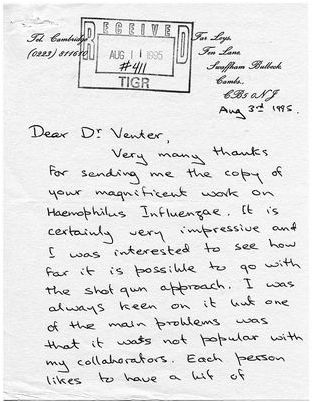 Tel. Cambridge
(0223) 811610
RECEIVED
AUG 11 1995
#411
TIGR
Far Leys,
Fen Lane,
Swaffham Bulbeck,
Cambs.,
CB5 0NJ
Aug 3rd 1995.
Dear Dr Venter,
Very many thanks
for sending me the copy of
your magnificent work on
Haemophilus Influenzae. It is
certainly very impressive and
I was interested to see how
far it is possible to go with
the shotgun approach. I was
always keen on it but one
of the main problems was
that it was not popular with
my collaborators. Each person
likes to have a bit of